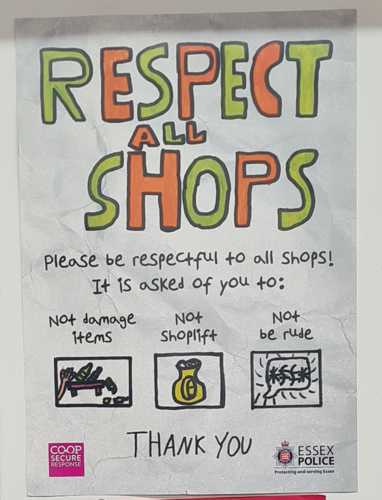 RESPECT
ALL
SHOPS
Please be respectful to all shops!
It is asked of you to:
Not damage items
Not shoplift
Not be rude
*$$*
THANK YOU
CO-OP
SECURE
RESPONSE
ESSEX
POLICE
Protecting and serving Essex